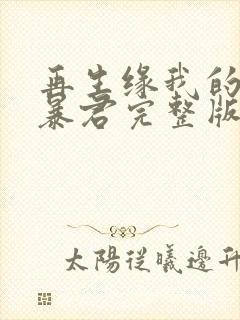 再生缘我的
暴君完整版
太陽從曦邊升